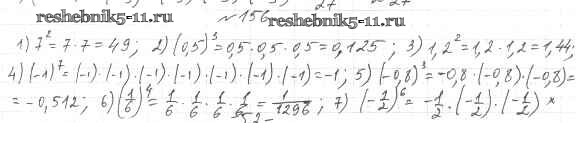 reshebnik5-11.ru
reshebnik5-11.ru
№ 156
1) 7² = 7 · 7 = 49; 2) (0,5)³ = 0,5 · 0,5 · 0,5 = 0,125; 3) 1,2² = 1,2 · 1,2 = 1,44;
4) (-1)⁷ = (-1) · (-1) · (-1) · (-1) · (-1) · (-1) · (-1) = -1; 5) (-0,8)³ = -0,8 · (-0,8) · (-0,8) =
= -0,512; 6) (1/6)⁴ = 1/6 · 1/6 · 1/6 · 1/6 = 1/1296; 7) (-1/2)⁶ = -1/2 · (-1/2) · (-1/2) ×